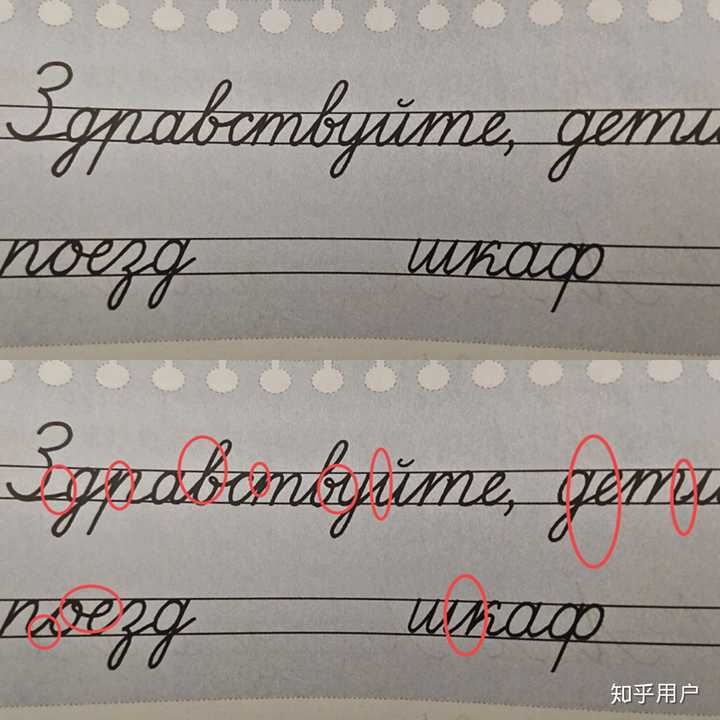 Здравствуйте, дети
поезд шкаф
Здравствуйте, дети
поезд шкаф
知乎用户